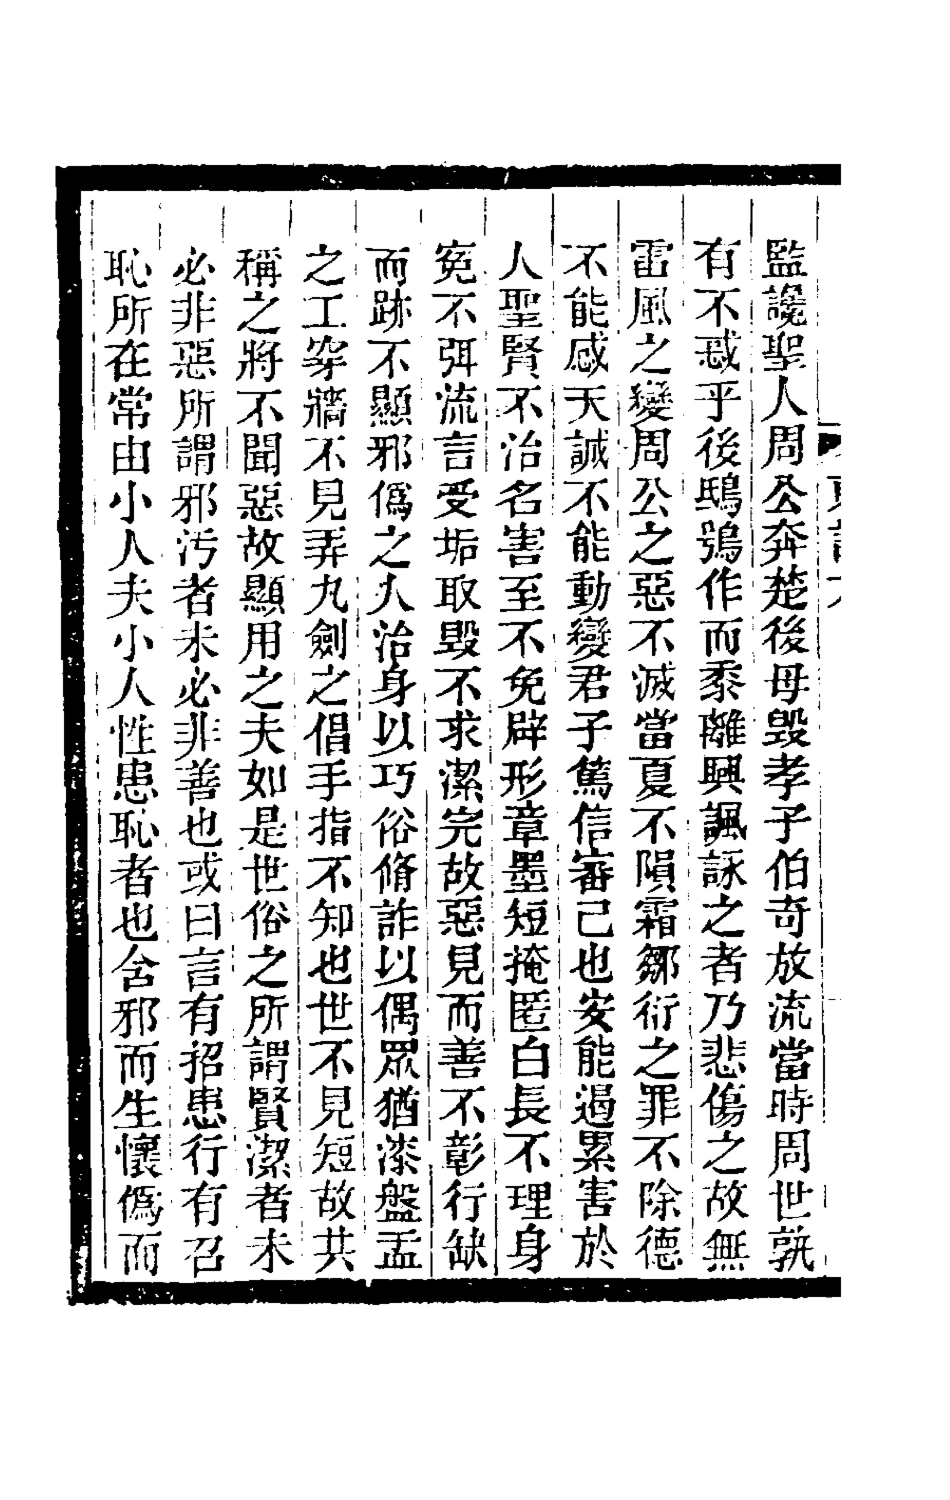 監讒聖人周公奔楚後母毀孝子伯奇放流當時周世孰
有不惑乎後鴟鴞作而黍離興諷詠之者乃悲傷之故無
雷風之變周公之惡不滅當夏不隕霜鄒衍之罪不除德
不能感天誠不能動變君子篤信審己也安能遏累害於
人聖賢不治名害至不免辟形章墨短掩匿白長不理身
冤不弭流言受垢取毀不求潔完故惡見而善不彰行缺
而跡不顯邪偽之人治身以巧俗脩詐以偶眾猶漆盤盂
之工穿牆不見弄丸劍之倡手指不知也世不見短故共
稱之將不聞惡故顯用之夫如是世俗之所謂賢潔者未
必非惡所謂邪汚者未必非善也或曰言有招患行有召
恥所在常由小人夫小人性患恥者也含邪而生懷偽而